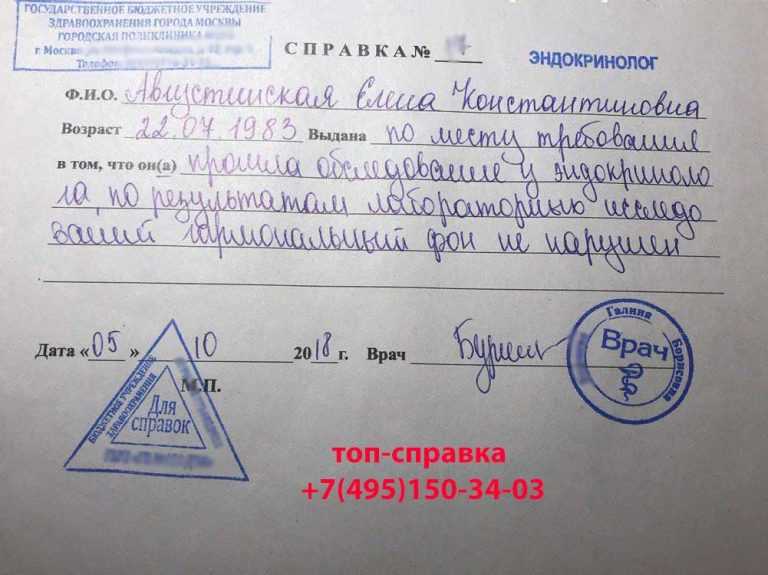 ГОСУДАРСТВЕННОЕ БЮДЖЕТНОЕ УЧРЕЖДЕНИЕ
ЗДРАВООХРАНЕНИЯ ГОРОДА МОСКВЫ
ГОРОДСКАЯ ПОЛИКЛИНИКА
г. Москва
Телефон
СПРАВКА №
ЭНДОКРИНОЛОГ
Ф.И.О. Августинская Елена Константиновна
Возраст 22.07.1983 Выдана по месту требования
в том, что он(а) прошла обследование у эндокриноло
га, по результатам лабораторных исследо
ваний гормональный фон не нарушен
Дата «05» 10 2018 г. Врач
М.П.
БЮДЖЕТНОЕ УЧРЕЖДЕНИЕ
ЗДРАВООХРАНЕНИЯ
Для
справок
Галина
Борисовна
Врач
топ-справка
+7(495)150-34-03